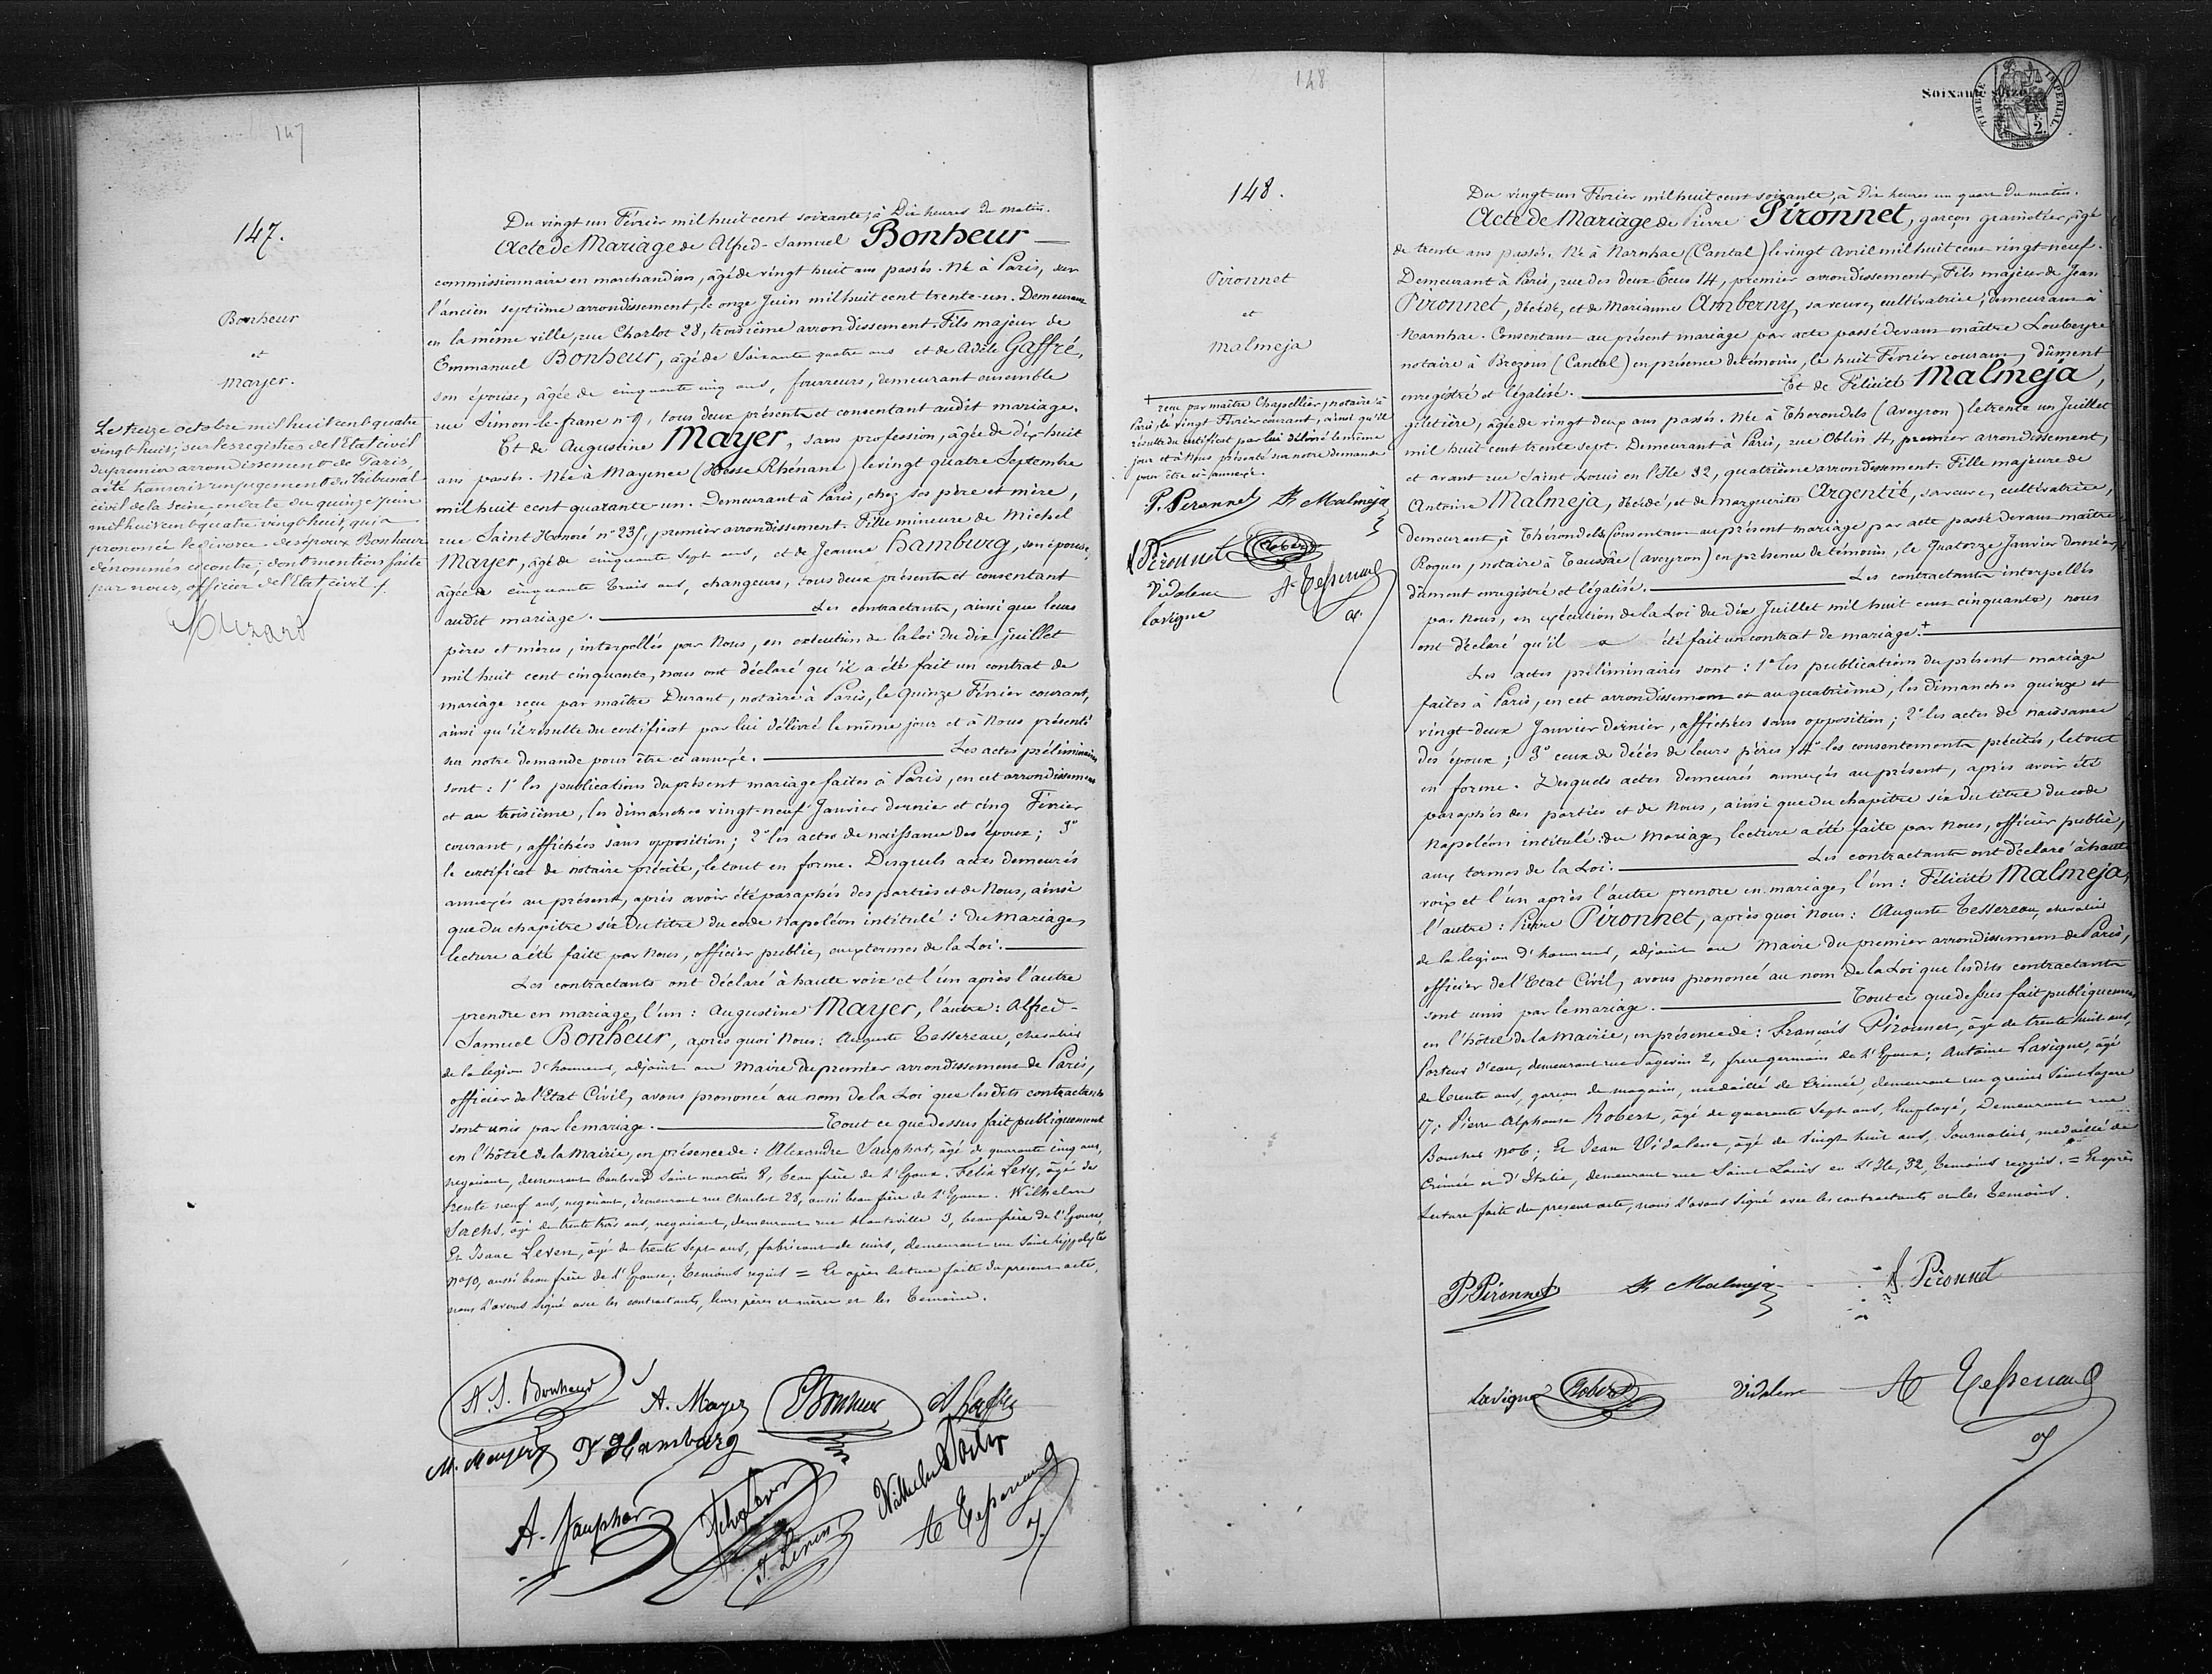 147
147.
Bonheur
et
Mayer.
Le treize octobre mil huit cent quatre
vingt huit, sur les registres de l'Etat civil
du premier arrondissement de Paris,
a été transcrit un jugement du Tribunal
civil de la Seine, en date du quinze juin
mil huit cent quatre vingt huit, qui a
prononcé le divorce des époux Bonheur
dénommés ci contre, dont mention faite
par nous, officier de l'Etat civil /.
Du vingt un Février mil huit cent soixante, à Dix heures du matin.
Acte de Mariage de Alfred-Samuel Bonheur
commissionnaire en marchandises, âgé de vingt huit ans passés. Né à Paris, sur
l'ancien septième arrondissement, le onze Juin mil huit cent trente-un. Demeurant
en la même ville, rue Charlot 28, troisième arrondissement. Fils majeur de
Emmanuel Bonheur, âgé de Soixante quatre ans et de Adèle Gaffré,
son épouse, âgée de cinquante cinq ans, fourreurs, demeurant ensemble
rue Simon-le-franc n° 9, tous deux présents et consentant audit mariage.
Et de Augustine Mayer, sans profession, âgée de dix-huit
ans passés. Née à Mayence (Hesse Rhénane) le vingt quatre Septembre
mil huit cent quarante-un. Demeurant à Paris, chez ses père et mère,
rue Saint Honoré n° 235, premier arrondissement. Fille mineure de Michel
Mayer, âgé de cinquante sept ans, et de Jeanne Hamburg, son épouse,
âgée de cinquante trois ans, changeurs, tous deux présents et consentant
audit mariage. Les contractants, ainsi que leurs
pères et mères, interpellés par Nous, en exécution de la loi du dix juillet
mil huit cent cinquante, nous ont déclaré qu'il a été fait un contrat de
mariage reçu par maître Durant, notaire à Paris, le quinze Février courant,
ainsi qu'il résulte du certificat par lui délivré le même jour et à Nous présenté
sur notre demande pour être ci annexé. Les actes préliminaires
sont : 1° les publications du présent mariage faites à Paris, en cet arrondissement
et au troisième, les dimanches vingt-neuf Janvier dernier et cinq Février
courant, affichées sans opposition ; 2° les actes de naissance des époux ; 3°
le certificat de notaire précité, le tout en forme. Desquels actes demeurés
annexés au présent, après avoir été paraphés des parties et de Nous, ainsi
que du chapitre six du titre du code Napoléon intitulé : Du Mariage,
lecture a été faite par Nous, officier public, aux termes de la Loi.
Les contractants ont déclaré à haute voix et l'un après l'autre
prendre en mariage, l'un : Augustine Mayer, l'autre : Alfred-
Samuel Bonheur, après quoi Nous : Auguste Tessereau, chevalier
de la légion d'honneur, adjoint au Maire du premier arrondissement de Paris,
officier de l'Etat Civil, avons prononcé au nom de la Loi que lesdits contractants
sont unis par le mariage. Tout ce que dessus fait publiquement
en l'hôtel de la Mairie, en présence de : Alexandre Jauphar, âgé de quarante cinq ans,
negociant, demeurant boulevard Saint-martin 8, beau frère de l'Epoux. Felix Levy, âgé de
trente neuf ans, negociant, demeurant rue Charlot 28, aussi beau frère de l'Epoux. Wilhelm
Sachs, âgé de trente trois ans, negociant, demeurant rue hauteville 3, beau frère de l'Epouse,
Et Isaac Leven, âgé de trente sept ans, fabricant de cuirs, demeurant rue Saint hippolyte
n° 10, aussi beau frère de l'Epouse, temoins requis = Et après lecture faite du present acte,
nous l'avons signé avec les contractants, leurs pères et mères et les temoins.
A. S. Bonheur A. Mayer Bonheur
M. Mayer Hamburg
A. Jauphar Wilhelm Sachs
Leven A Tessereau
148
148.
Pironnet
et
Malmeja
+ reçu par maître Chapellier, notaire à
Paris, le vingt Février courant, ainsi qu'il
résulte du certificat par lui délivré le même
jour et à Nous présenté sur notre demande
pour être ci-annexé.
P. Pironnet F. Malmeja
f Pironnet Robert
Vidalenc A Tessereau
Lavigne
Soixante seize
TIMBRE IMPERIAL
2
SEINE
Du vingt-un Février mil huit cent soixante, à Dix heures un quart du matin.
Acte de Mariage de Pierre Pironnet, garçon grainetier, âgé
de trente ans passés. Né à Narnhac (Cantal) le vingt Avril mil huit cent vingt-neuf.
Demeurant à Paris, rue des deux Ecus 14, premier arrondissement. Fils majeur de Jean
Pironnet, décédé, et de Marianne Amberny, sa veuve, cultivatrice, demeurant à
Narnhac. Consentant au présent mariage par acte passé devant maître Loubeyre
notaire à Brezons (Cantal) en présence de témoins, le huit Février courant, dûment
enregistré et légalisé. Et de Félicité Malmeja,
giletière, âgée de vingt deux ans passés. Née à Thérondels (Aveyron) le trente un Juillet
mil huit cent trente sept. Demeurant à Paris, rue Oblin 4, premier arrondissement,
et avant rue Saint Louis en l'Ile 32, quatrième arrondissement. Fille majeure de
Antoine Malmeja, décédé, et de Marguerite Argentié, sa veuve, cultivatrice,
demeurant à Thérondels. Consentant au présent mariage par acte passé devant maître
Roques, notaire à Taussac (Aveyron) en présence de témoins, le Quatorze Janvier dernier,
dûment enregistré et légalisé. Les contractants interpellés
par Nous, en exécution de la Loi du dix Juillet mil huit cent cinquante, nous
ont déclaré qu'il a été fait un contrat de mariage. +
Les actes préliminaires sont : 1° les publications du présent mariage
faites à Paris, en cet arrondissement et au quatrième, les dimanches quinze et
vingt-deux Janvier dernier, affichées sans opposition ; 2° les actes de naissance
des époux ; 3° ceux de décès de leurs pères ; 4° les consentements précités, le tout
en forme. Desquels actes demeurés annexés au présent, après avoir été
paraphés des parties et de Nous, ainsi que du chapitre six du titre du code
Napoléon intitulé : du Mariage, lecture a été faite par Nous, officier public,
aux termes de la Loi. Les contractants ont déclaré à haute
voix et l'un après l'autre prendre en mariage, l'un : Félicité Malmeja,
l'autre : Pierre Pironnet, après quoi Nous : Auguste Tessereau, chevalier
de la légion d'honneur, adjoint au Maire du premier arrondissement de Paris,
officier de l'Etat Civil, avons prononcé au nom de la Loi que lesdits contractants
sont unis par le mariage. Tout ce que dessus fait publiquement
en l'hôtel de la Mairie, en présence de : François Pironnet, âgé de trente huit ans,
Porteur d'eau, demeurant rue Pagevin 2, frere germain de l'Epoux ; Antoine Lavigne, âgé
de trente ans, garçon de magasin, médaillé de Crimée, demeurant rue grenier Saint-Lazare
17 ; Pierre Alphonse Robert, âgé de quarante sept ans, Employé, Demeurant rue
Boucher n° 6 ; Et Jean Vidalenc, âgé de Vingt huit ans, Journalier, médaillé de
Crimée et d'Italie, demeurant rue Saint Louis en l'Ile, 32, temoins requis. = Et après
lecture faite du present acte, nous l'avons signé avec les contractants et les temoins.
P. Pironnet F. Malmeja f Pironnet
Lavigne Robert Vidalenc A Tessereau